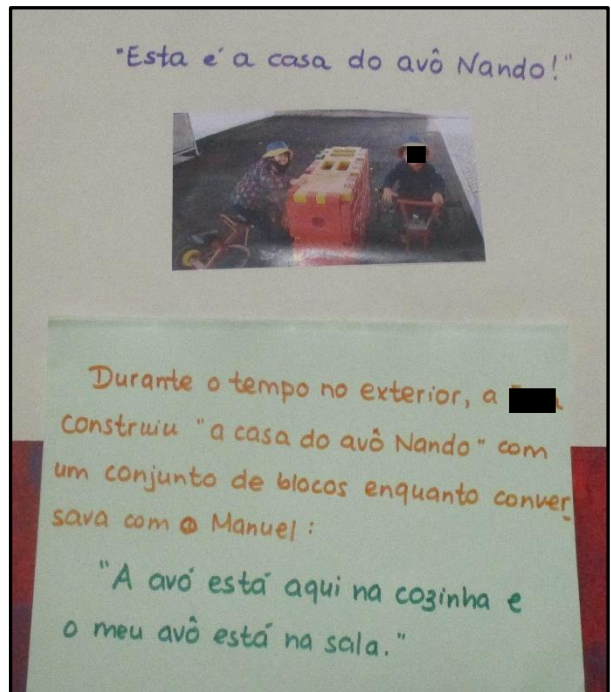 "Esta é a casa do avô Nando!"
Durante o tempo no exterior, a
construiu "a casa do avô Nando" com
um conjunto de blocos enquanto conver
sava com o Manuel:
"A avó está aqui na cozinha e
o meu avô está na sala."